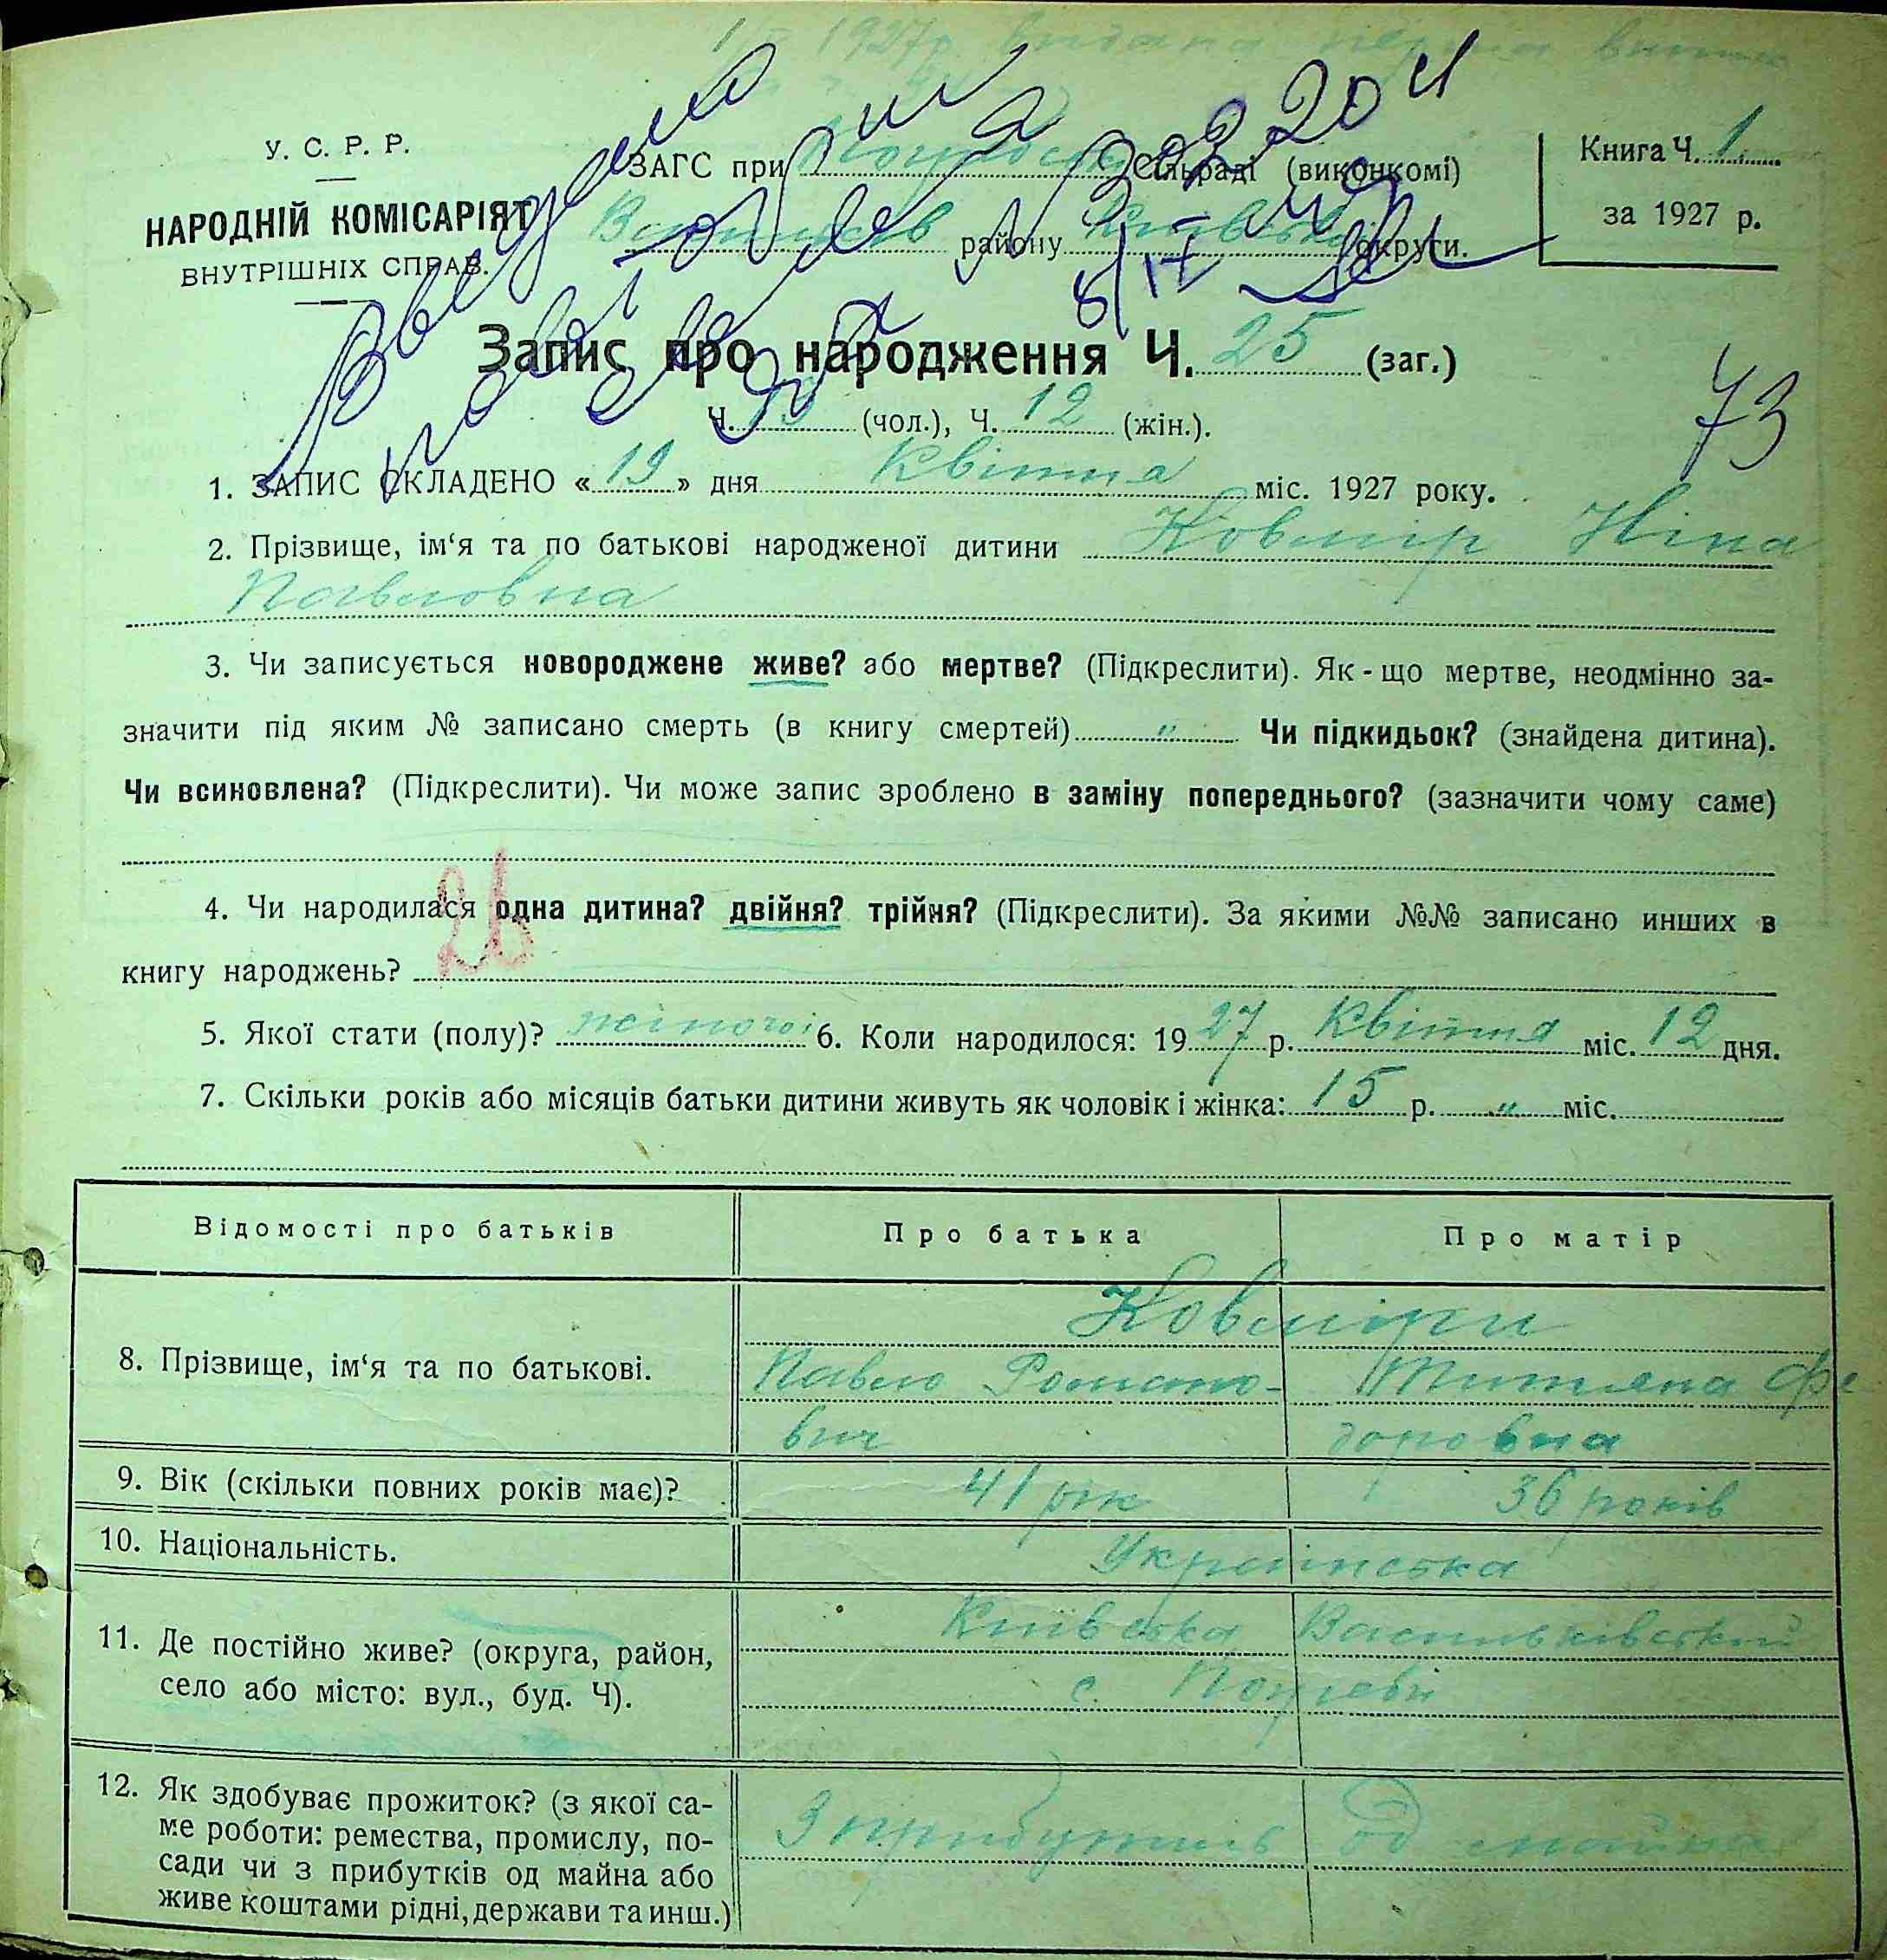 1927р. видана
У. С. Р. Р.
НАРОДНІЙ КОМІСАРІЯТ
ВНУТРІШНІХ СПРАВ.
ЗАГС при Сільраді (виконкомі)
району округи.
Книга Ч. 1.
за 1927 р.
Запис про народження Ч. 25 (заг.)
Ч. 13 (чол.), Ч. 12 (жін.).
73
1. ЗАПИС СКЛАДЕНО «19» дня Квітня міс. 1927 року.
2. Прізвище, ім'я та по батькові народженої дитини Ковмір Ніна
Павловна
3. Чи записується новороджене живе? або мертве? (Підкреслити). Як-що мертве, неодмінно за-
значити під яким № записано смерть (в книгу смертей) „ Чи підкидьок? (знайдена дитина).
Чи всиновлена? (Підкреслити). Чи може запис зроблено в заміну попереднього? (зазначити чому саме)
4. Чи народилася одна дитина? двійня? трійня? (Підкреслити). За якими №№ записано инших в
книгу народжень? 26
5. Якої стати (полу)? жіночої 6. Коли народилося: 1927 р. Квітня міс. 12 дня.
7. Скільки років або місяців батьки дитини живуть як чоловік і жінка: 15 р. „ міс.
Відомості про батьків Про батька Про матір
Ковміри
8. Прізвище, ім'я та по батькові. Павло Романо- Титяна Фе
вич доровна
9. Вік (скільки повних років має)? 41 рік 36 років
10. Національність. Українська
11. Де постійно живе? (округа, район, село або місто: вул., буд. Ч). Київська Васильківський
с. Погреби
12. Як здобуває прожиток? (з якої са-
ме роботи: ремества, промислу, по-
сади чи з прибутків од майна або
живе коштами рідні, держави та инш.)
З прибутків од майна